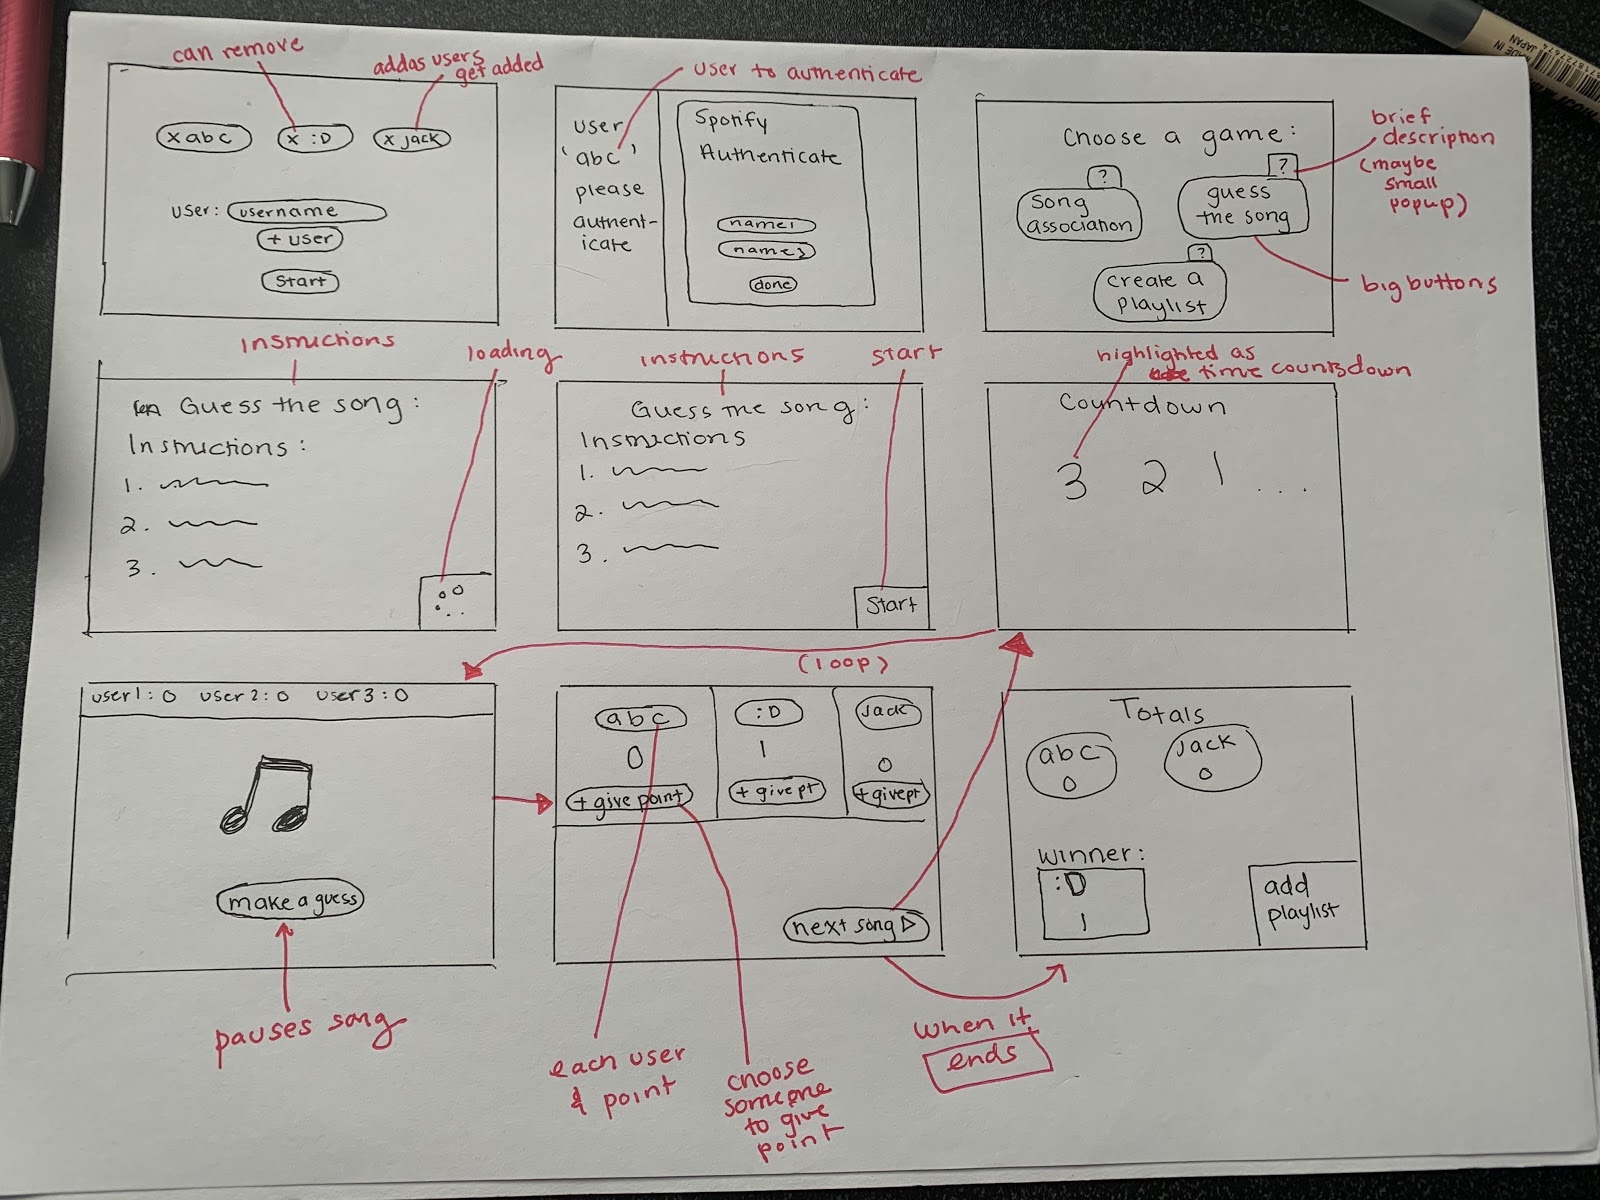 can remove
addas users
get added
x abc
x :D
x jack
user: username
+ user
Start
user to authenticate
user
'abc'
please
authent-
icate
Spotify
Authenticate
name1
name2
done
Choose a game:
?
song
association
?
guess
the song
?
create a
playlist
brief
description
(maybe
small
popup)
big buttons
instructions
loading
Guess the song:
Instructions:
1.
2.
3.
instructions
start
Guess the song:
Instructions
1.
2.
3.
Start
highlighted as
time countsdown
Countdown
3 2 1 ...
(loop)
user1: 0 user2: 0 user3: 0
make a guess
pauses song
abc
0
+ give point
:D
1
+ give pt
Jack
0
+ give pt
next song
each user
& point
choose
someone
to give
point
when it
ends
Totals
abc
0
Jack
0
winner:
:D
1
add
playlist
MADE IN
JAPAN